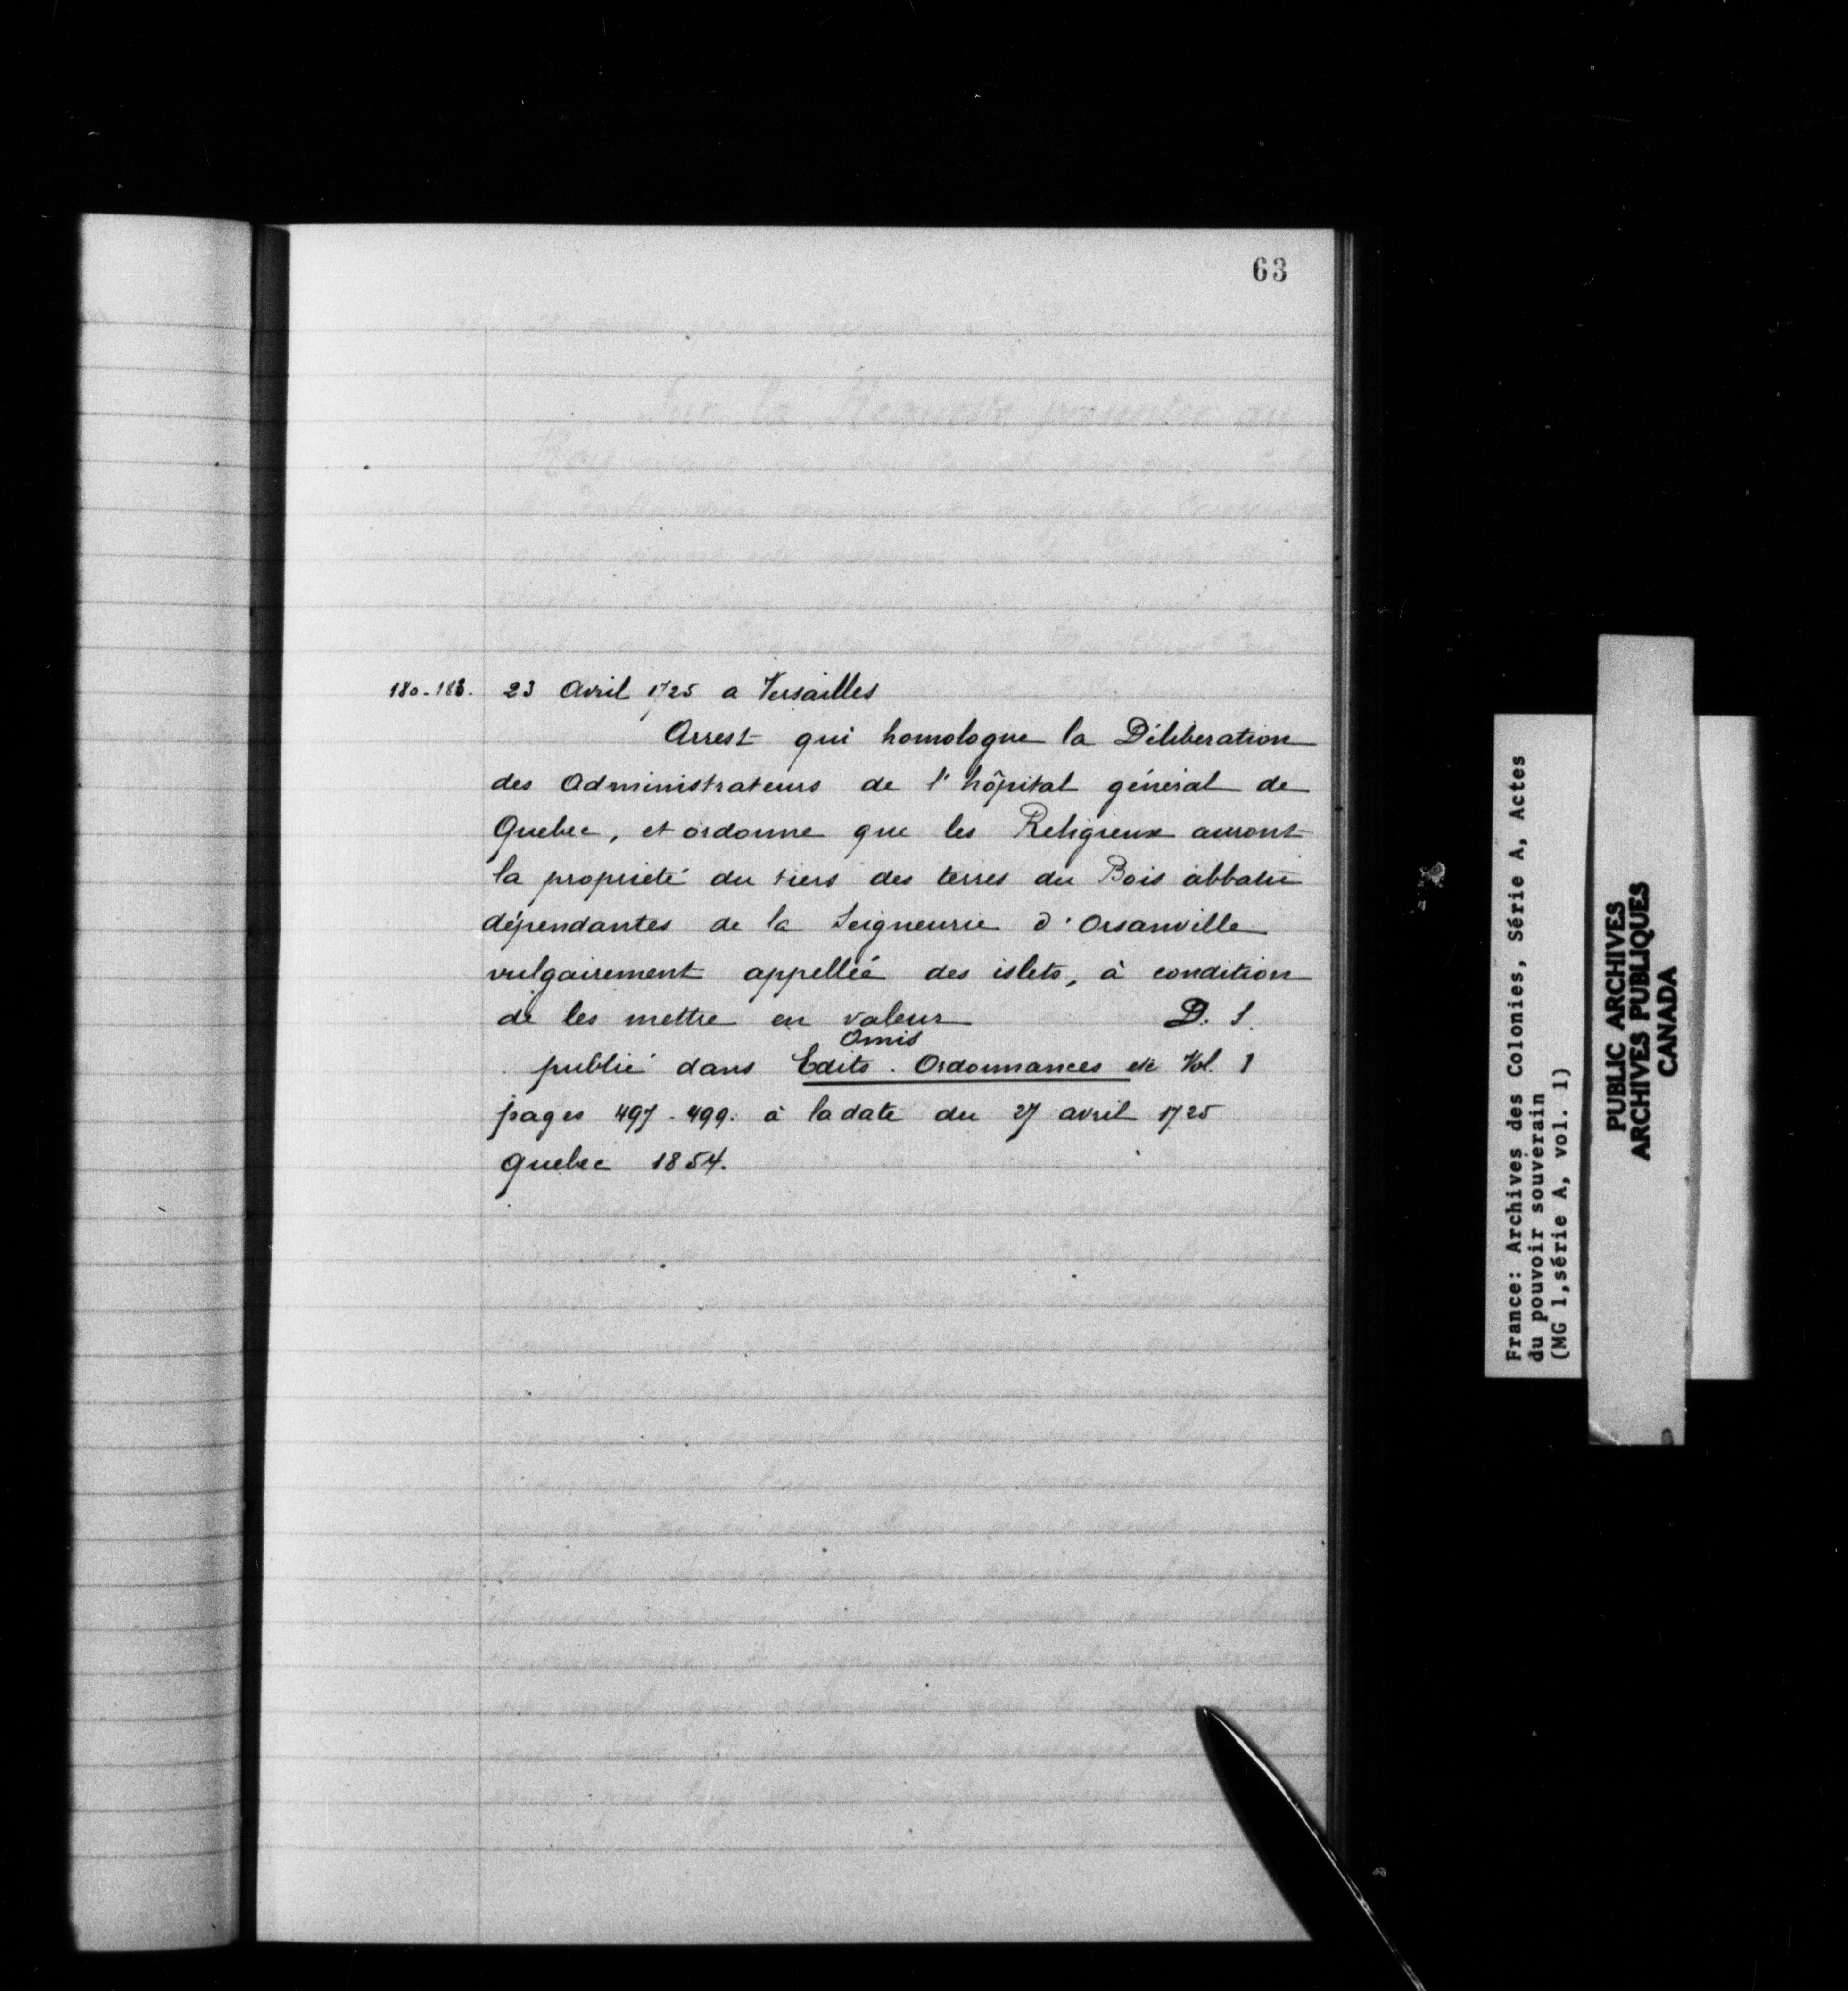 63
180-183. 23 Avril 1725 a Versailles
Arrest qui homologue la Déliberation
des Administrateurs de l'hôpital général de
Quebec, et ordonne que les Religieux auront
la propriété du tiers des terres du Bois abbatu
dépendantes de la Seigneurie d'Orsanville
vulgairement appellée des islets, à condition
de les mettre en valeur D. S.
Omis
publié dans Edits. Ordonnances etc Vol. 1
pages 497-499. à la date du 27 avril 1725
Quebec 1854.
France: Archives des Colonies, Série A, Actes
du pouvoir souverain
(MG 1,série A, vol. 1)
PUBLIC ARCHIVES
ARCHIVES PUBLIQUES
CANADA